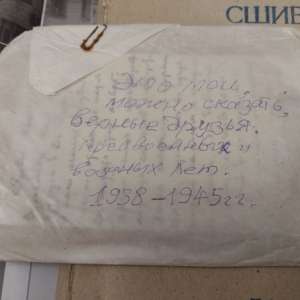 СШИВ
Это мои,
можно сказать,
верные друзья.
предвоенных и
военных лет.
1938-1945 гг.